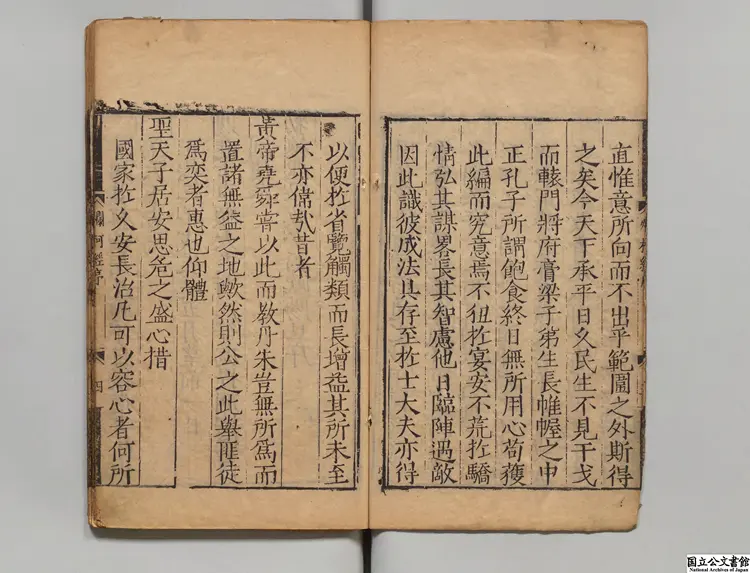 直惟意所向而不出乎範圍之外斯得
之矣今天下承平日久民生不見干戈
而轅門將府膏梁子弟生長帷幄之中
正孔子所謂飽食終日無所用心苟獲
此編而究意焉不狃扵宴安不荒扵驕
情弘其謀畧長其智慮他日臨陣遇敵
因此識彼成法具存至扵士大夫亦得
以便扵省覽觸類而長增益其所未至
不亦偉㢤昔者
黃帝堯舜嘗以此而教丹朱豈無所爲而
置諸無益之地歟然則公之此舉匪徒
爲奕者惠也仰體
聖天子居安思危之盛心措
國家扵久安長治凡可以容心者何所
柯經序
四
国立公文書館
National Archives of Japan